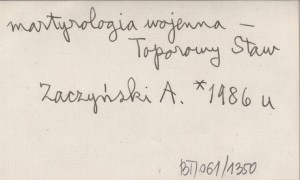 martyrologia wojenna –
Toporowy Staw
Zaczyński A. *1986 u
BTJ061/1350